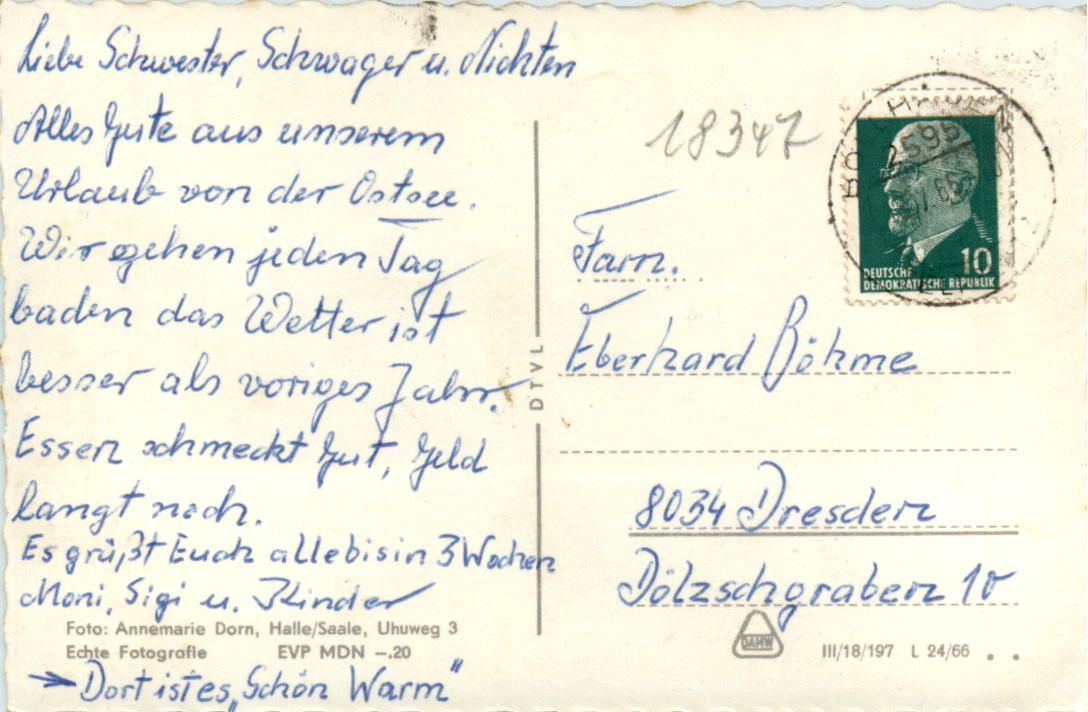 Liebe Schwester, Schwager u. Nichten
Alles Gute aus unserem
Urlaub von der Ostsee.
Wir gehen jeden Tag
baden das Wetter ist
besser als voriges Jahr.
Essen schmeckt gut, Geld
langt noch.
Es grüßt Euch alle bis in 3 Wochen
Moni, Sigi u. Kinder
Foto: Annemarie Dorn, Halle/Saale, Uhuweg 3
Echte Fotografie EVP MDN –.20
→ Dort ist es „Schön Warm"
DTVL
18347
DEUTSCHE 10
DEMOKRATISCHE REPUBLIK
2595
Fam.
Eberhard Böhme
8034 Dresden
Dölzschgraben 10
DAMW
III/18/197 L 24/66